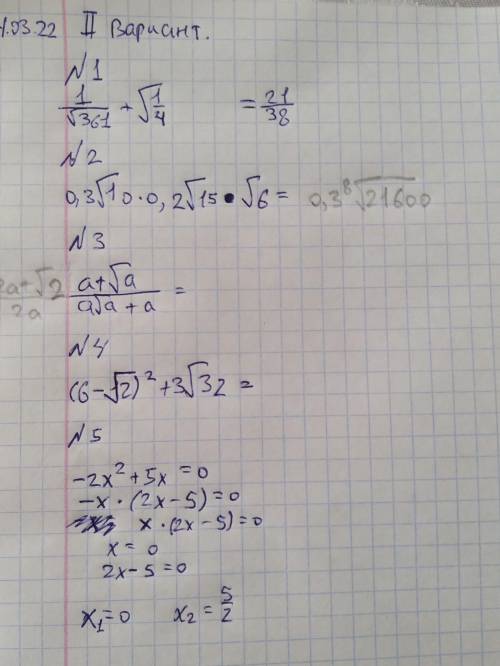 .03.22 II Вариант.
N1
1/√361 + √1/4 = 21/38
N2
0,3√10 · 0,2√15 · √6 = 0,3⁸√21600
N3
2a+√2/2a a+√a/a√a + a =
N4
(6-√2)² + 3√32 =
N5
-2x² + 5x = 0
-x · (2x - 5) = 0
x · (2x - 5) = 0
x = 0
2x - 5 = 0
x₁ = 0 x₂ = 5/2